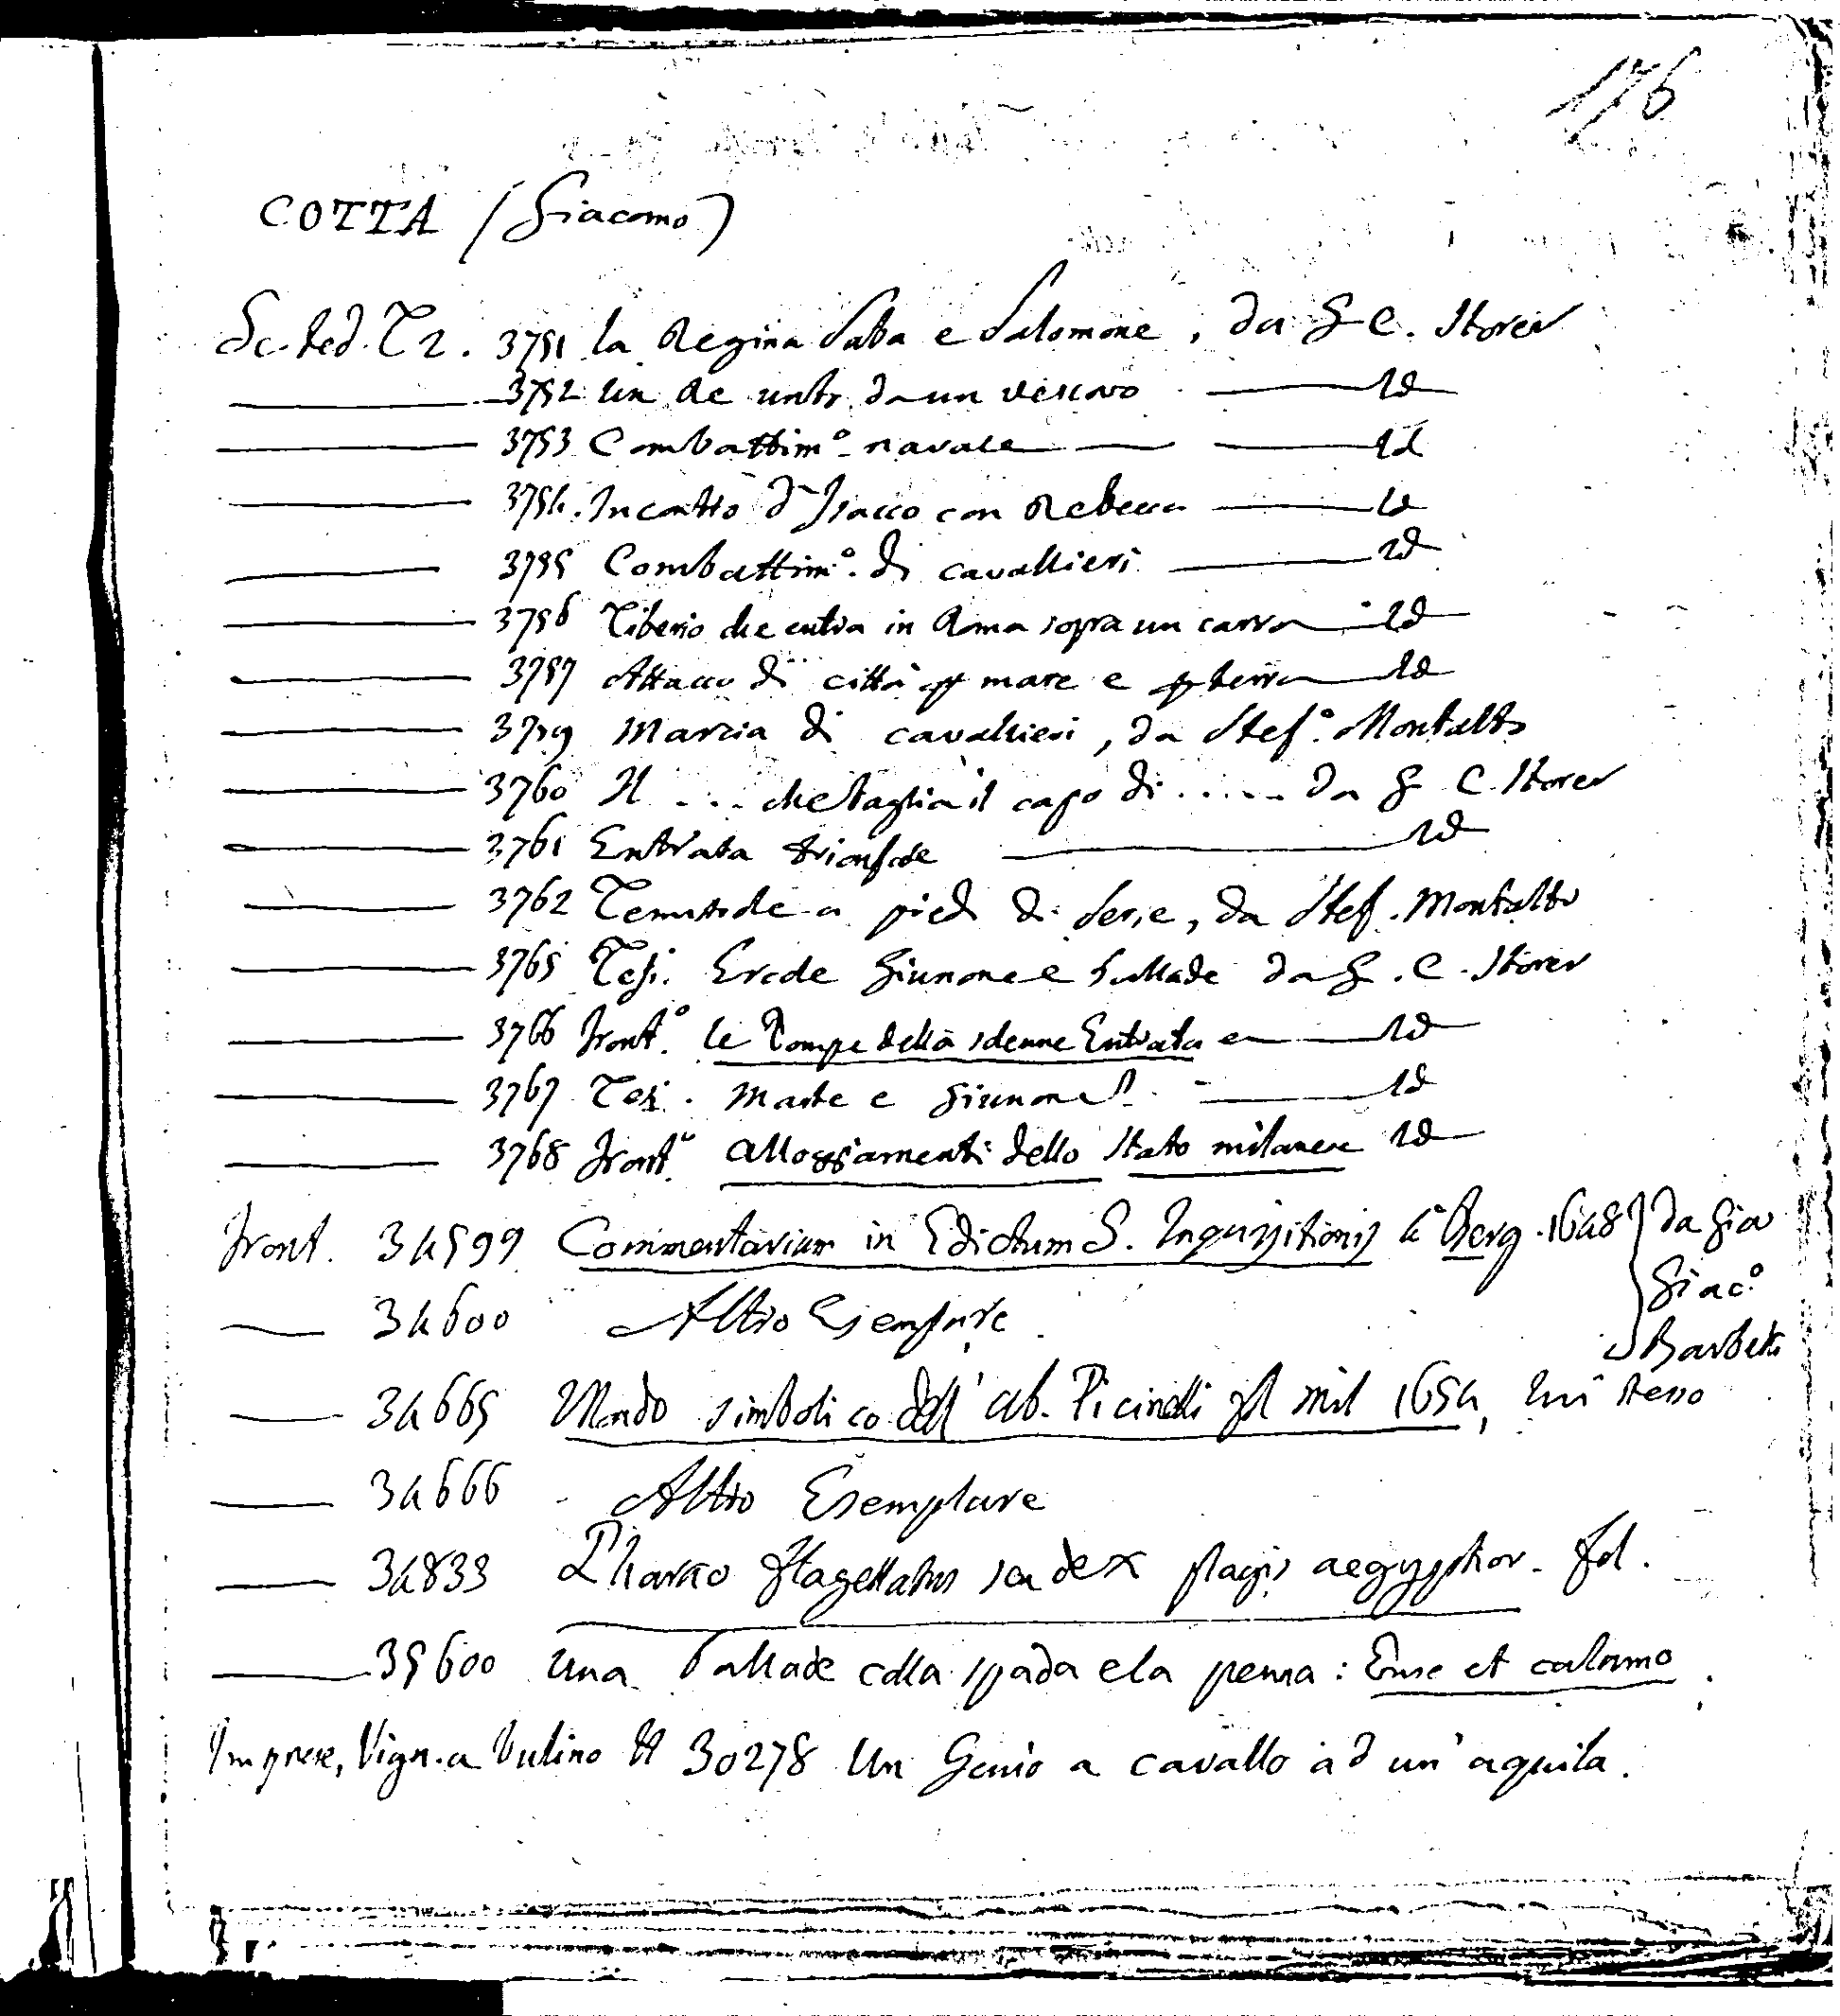 176
COTTA (Giacomo)
Sc. ted. T 2. 3751 la Regina Saba e Salomone, da G C. Storer
3752 Un Re unto da un vescovo Id
3753 Combattim.o navale Id
3754. Incontro d'Isacco con Rebecca Id
3755 Combattim.o di cavallieri Id
3756 Tiberio che entra in Roma sopra un carro Id
3757 Attacco di città p mare e p terra Id
3759 Marcia di cavallieri, da Stef.o Montalto
3760 Il ... che taglia il capo di ..... da G C. Storer
3761 Entrata trionfale Id
3762 Temistocle a piedi di Serse, da Stef. Montalto
3765 Tesi. Ercole Giunone e Pallade da G. C. Storer
3766 front.o le Pompe della solenne Entrata Id
3767 Tesi. Marte e Giunone Id
3768 front.o alloggiamenti dello Stato milanese Id
front. 34599 Commentarium in Edictum S. Inquisitionis Berg. 1648 } da Gia
34600 Altro Esemplare Giac.o
Barbetti
34665 Mondo simbolico dell'ab. Picinelli fol mil 1654, lui stesso
34666 Altro Esemplare
34833 Pharao flagellatus seu dex plagis aegyptior. fol.
35600 una Pallade colla spada e la penna: Ense et calamo
Imprese, Vign. a bulino 30278 Un Genio a cavallo ad un'aquila.